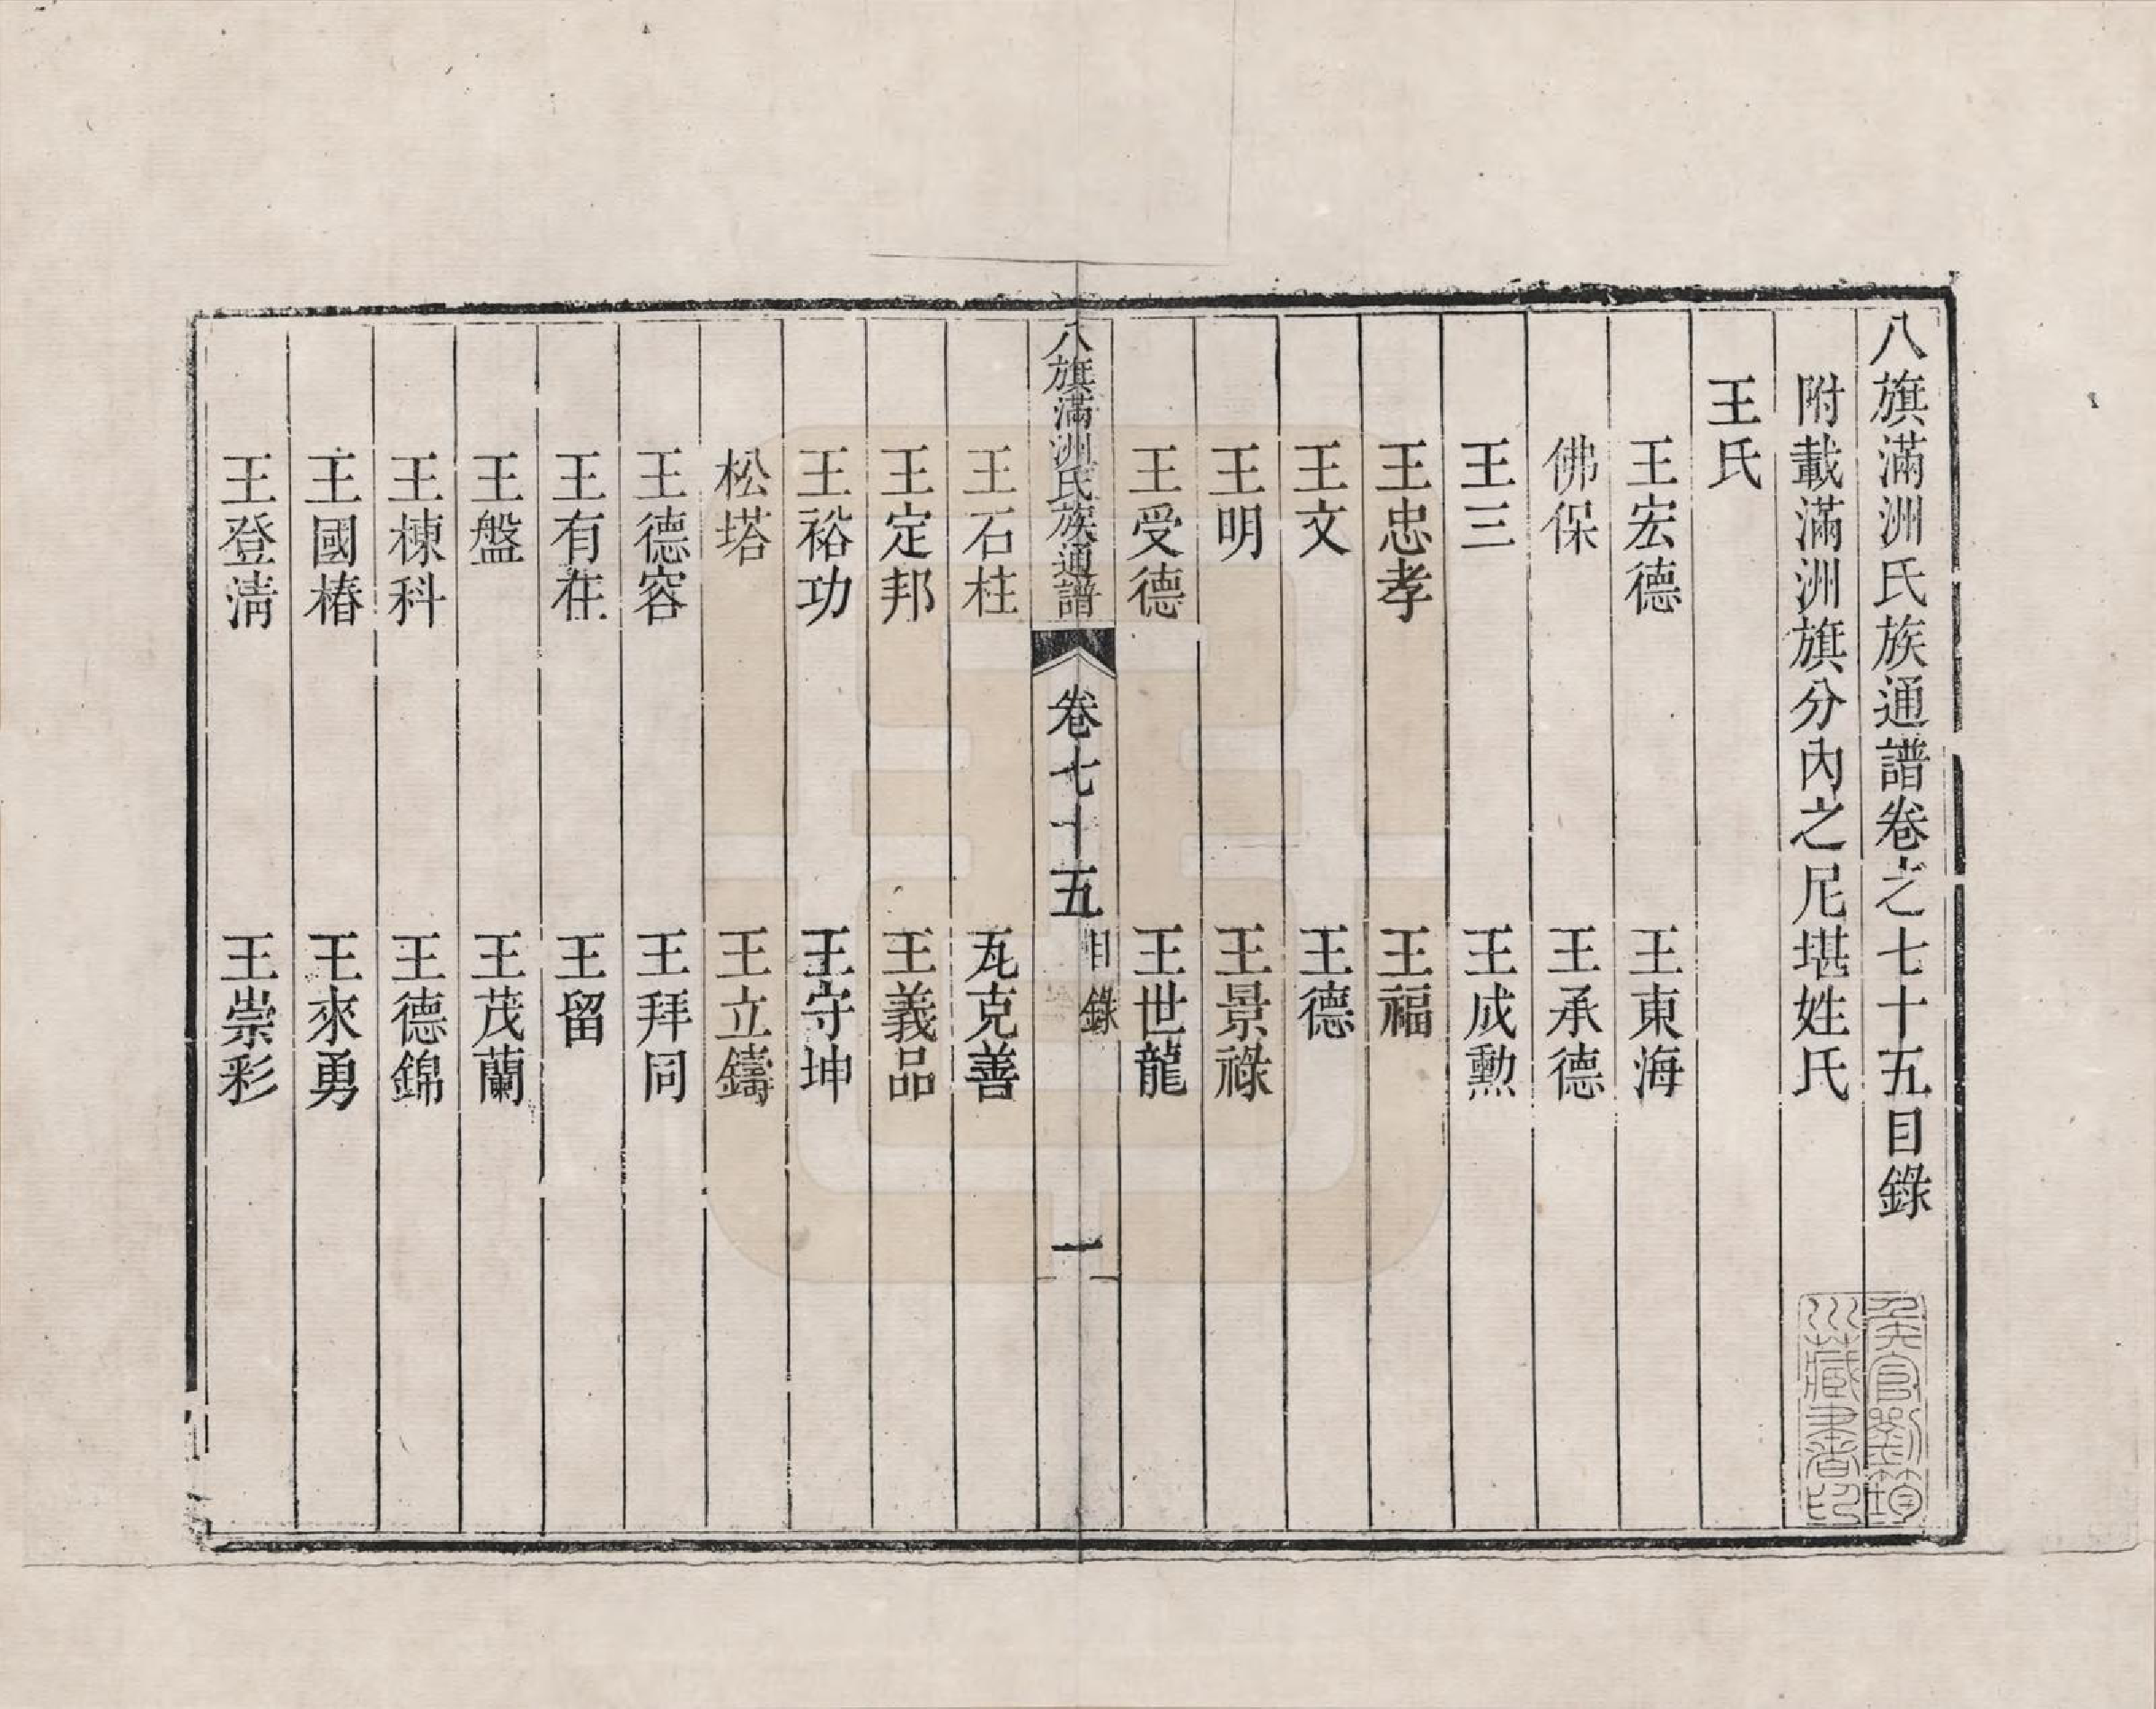 八旗滿洲氏族通譜卷之七十五目錄
附載滿洲旗分內之尼堪姓氏
王氏
王宏德　王東海
佛保　王承德
王三　王成勳
王忠孝　王福
王文　王德
王明　王景祿
王受德　王世龍
八旗滿洲氏族通譜　卷七十五　目錄　一
王石柱　瓦克善
王定邦　王義品
王裕功　王守坤
松塔　王立鑄
王德容　王拜同
王有在　王留
王盤　王茂蘭
王棟科　王德錦
王國椿　王來勇
王登清　王崇彩
藏書印